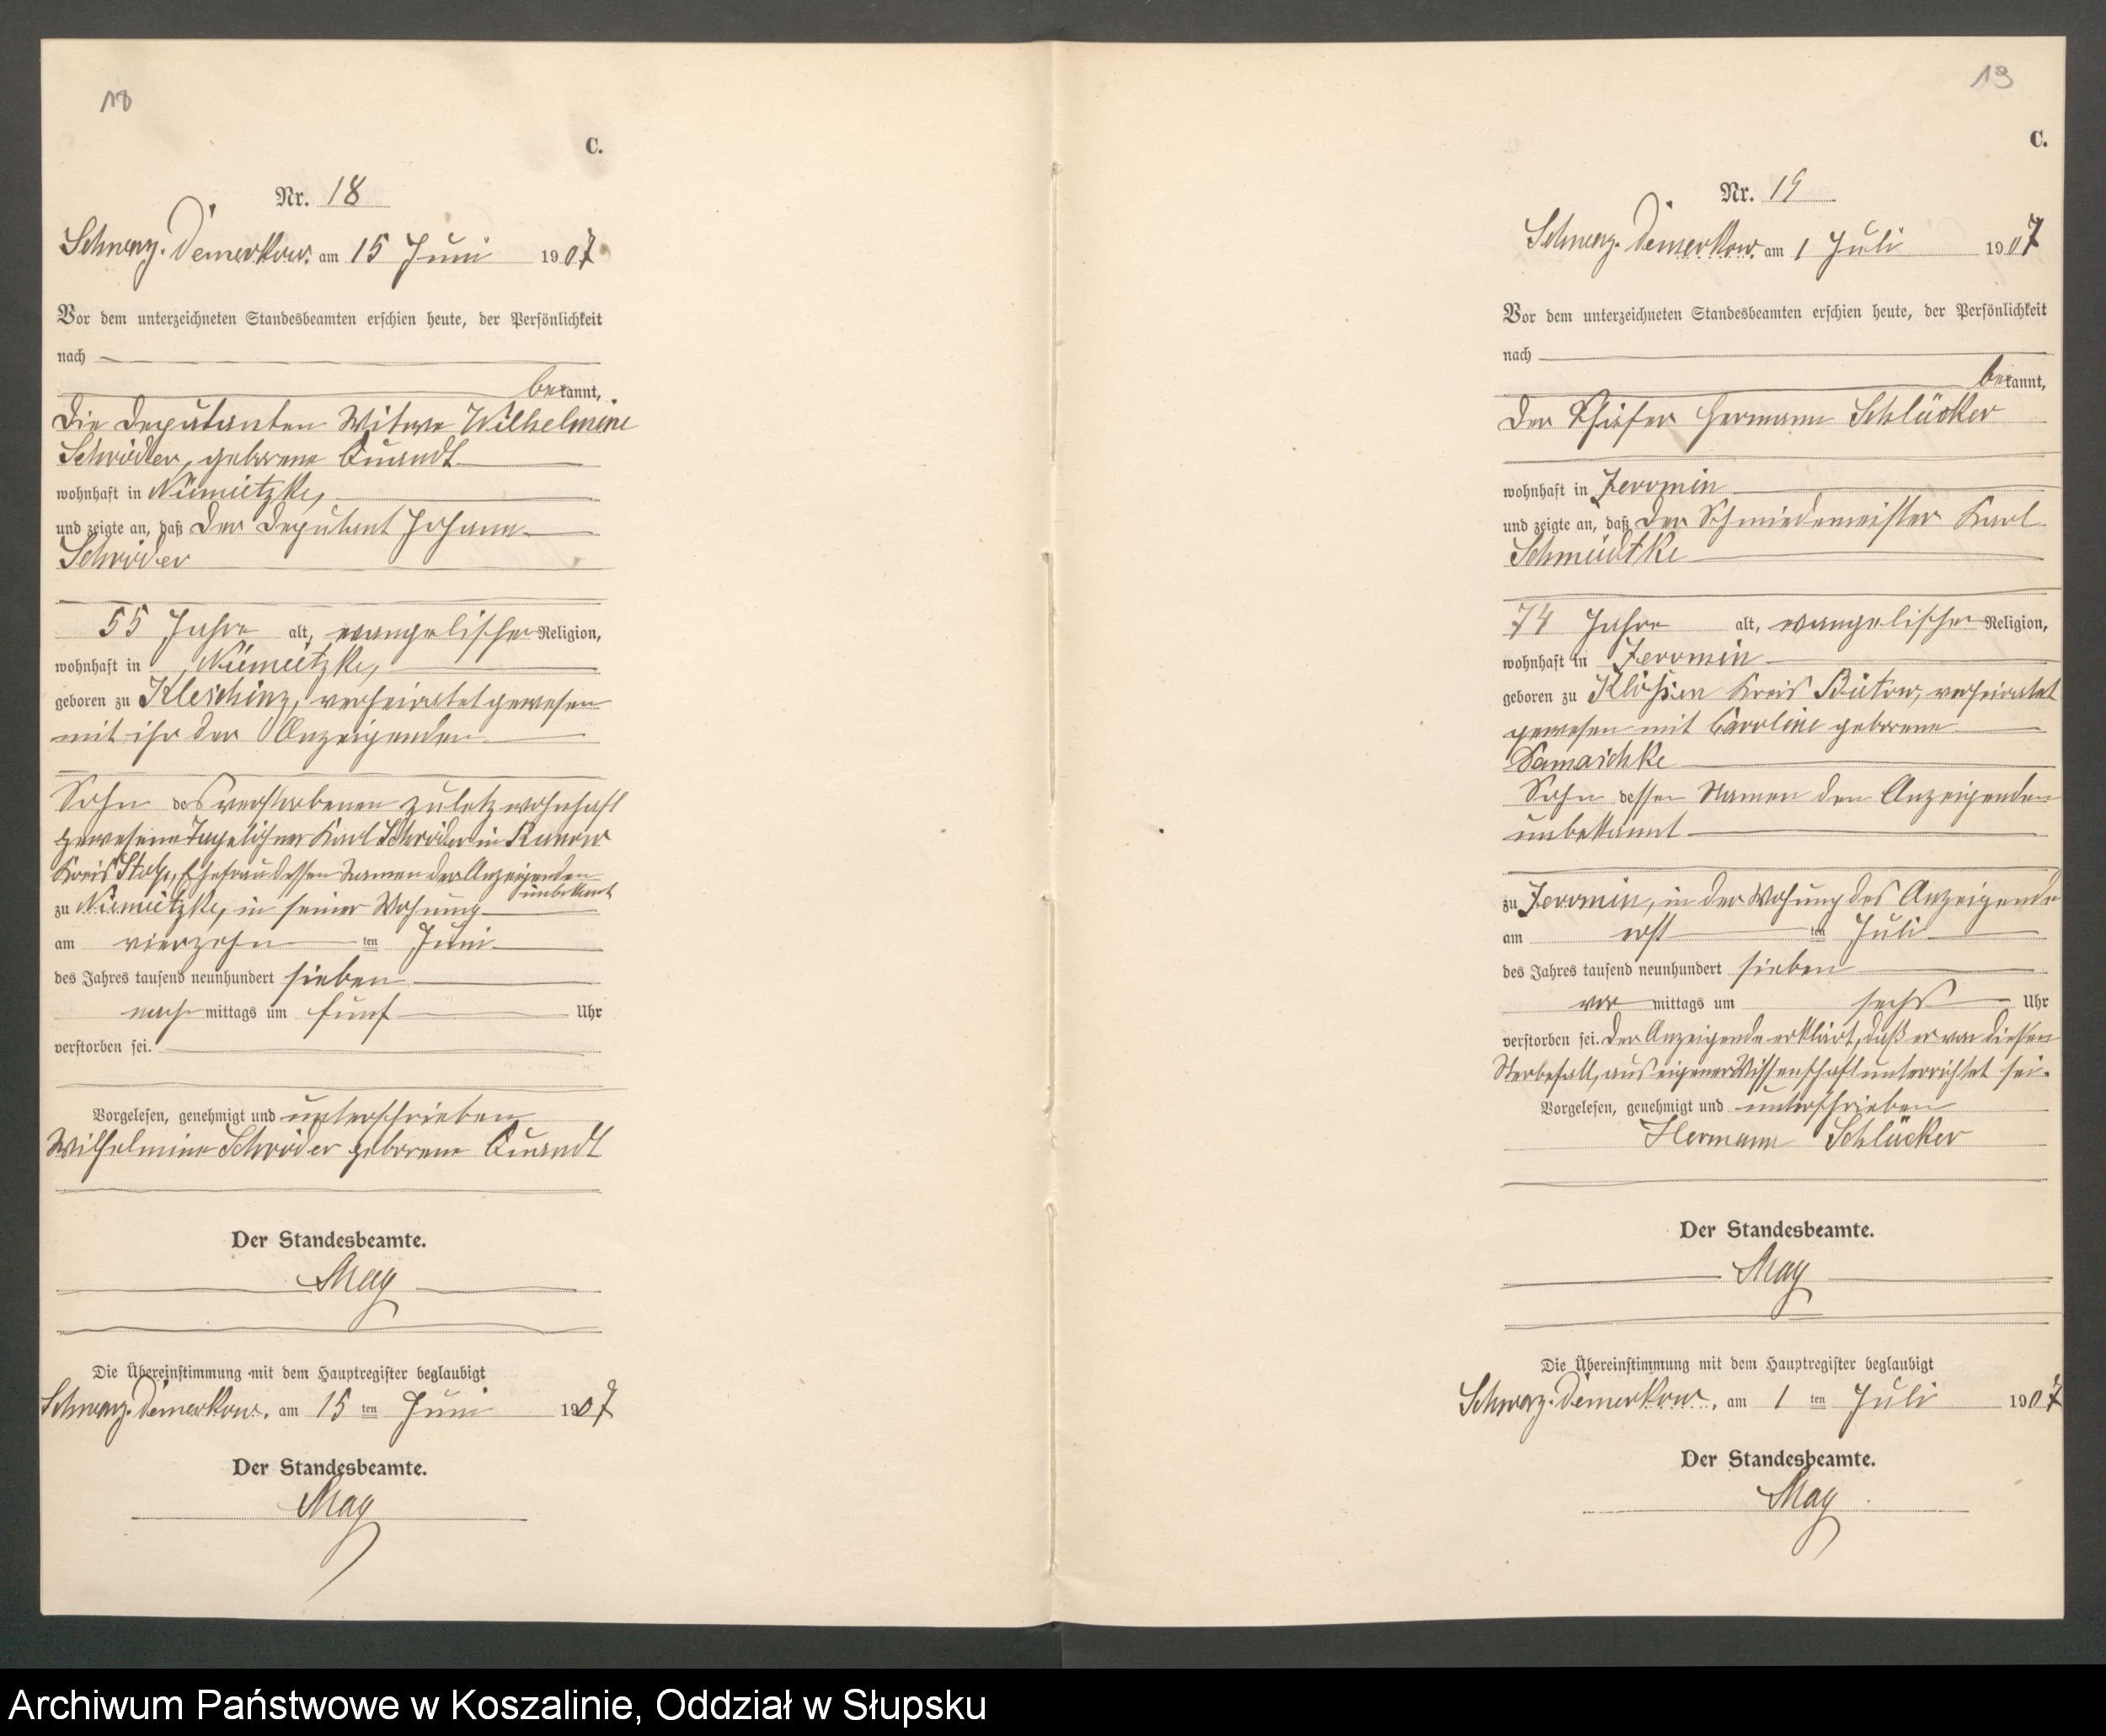 18
C.
Nr. 18
Schwarz-Damerkow. am 15 Juni 1907
Vor dem unterzeichneten Standesbeamten erschien heute, der Persönlichkeit
nach
bekannt,
die Deputanten Witwe Wilhelmine
Schröder, geborene Quandt
wohnhaft in Niemietzke,
und zeigte an, daß der Deputant Johann
Schröder
55 Jahre alt, evangelischer Religion,
wohnhaft in Niemietzke,
geboren zu Kleschinz, verheiratet gewesen
mit ihr der Anzeigenden
Sohn des verstorbenen zuletz wohnhaft
gewesene Tagelöhner Karl Schröder in Runow
Kreis Stolp, Ehefrau dessen Namen der Anzeigenden
unbekannt
zu Niemietzke, in seiner Wohnung
am vierzehn ten Juni
des Jahres tausend neunhundert sieben
nach mittags um fünf Uhr
verstorben sei.
Vorgelesen, genehmigt und unterschrieben
Wilhelmine Schröder geborene Quandt
Der Standesbeamte.
May
Die Übereinstimmung mit dem Hauptregister beglaubigt
Schwarz-Damerkow. am 15 ten Juni 1907
Der Standesbeamte.
May
19
C.
Nr. 19
Schwarz-Damerkow. am 1 Juli 1907
Vor dem unterzeichneten Standesbeamten erschien heute, der Persönlichkeit
nach
bekannt,
der Hermann Schlücker
wohnhaft in Jeromin
und zeigte an, daß der Schmiedemeister Karl
Schmidtke
74 Jahre alt, evangelischer Religion,
wohnhaft in Jeromin
geboren zu Kreis Bütow, verheiratet
gewesen mit Caroline geborene
Damaschke
Sohn dessen Namen den Anzeigenden
unbekannt
zu Jeromin, in der Wohung des Anzeigende
am erst ten Juli
des Jahres tausend neunhundert sieben
vor mittags um sechs Uhr
verstorben sei. Der Anzeigende erklärt, daß er von diesen
Sterbefall, aus eigener Wissenschaft unterrichtet sei.
Vorgelesen, genehmigt und unterschrieben
Hermann Schlücker
Der Standesbeamte.
May
Die Übereinstimmung mit dem Hauptregister beglaubigt
Schwarz-Damerkow. am 1 ten Juli 1907
Der Standesbeamte.
May
Archiwum Państwowe w Koszalinie, Oddział w Słupsku